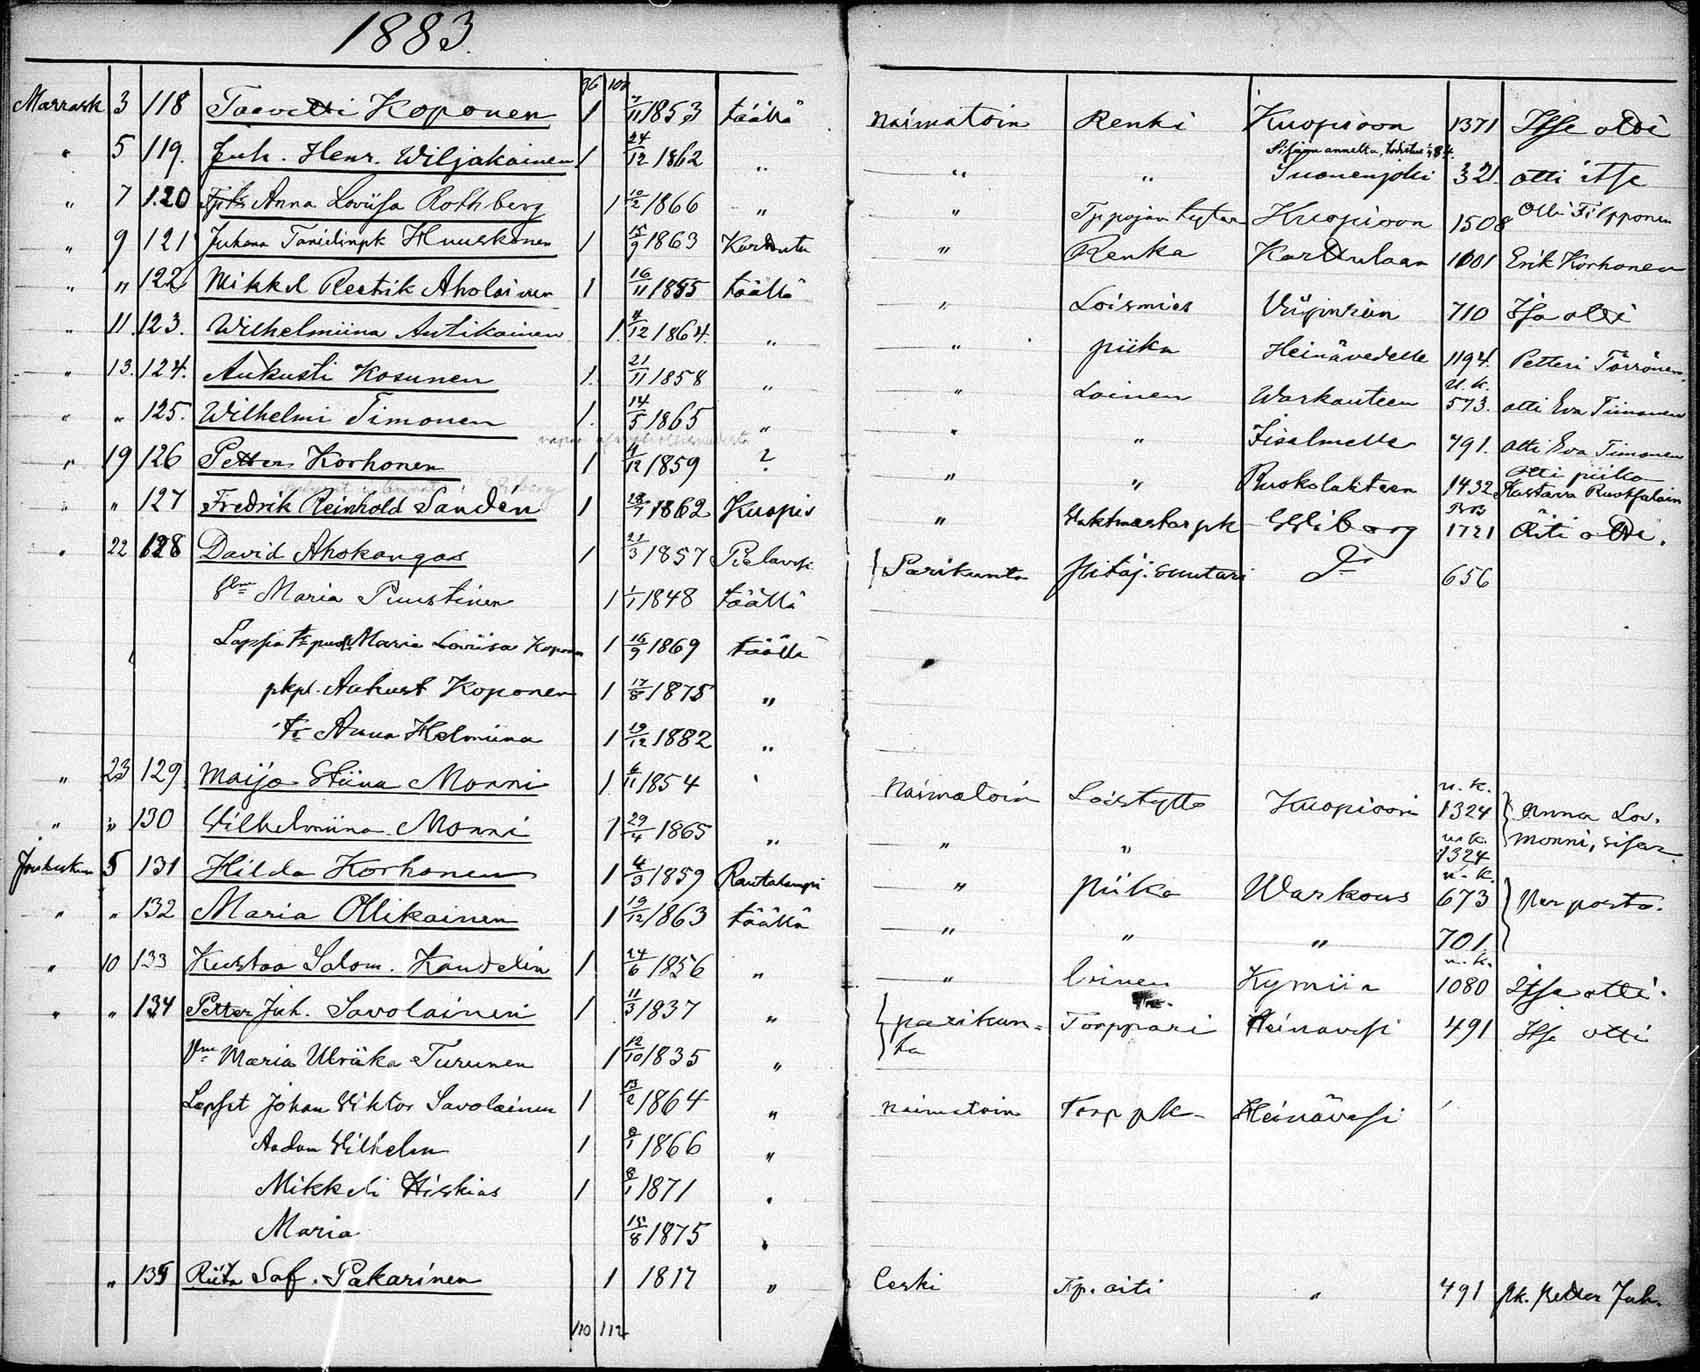 1883.
96 102
Marrask 3 118 Taavetti Koponen 1 7/11 1853 täällä Naimatoin Renki Kuopioon 1371 Itse otti
" 5 119. Juh. Henr. Wiljakainen 1 24/12 1862 " " " Suonenjoki 321. otti itse
" 7 120 Anna Lovisa Rothberg 1 10/2 1866 " " Kuopioon 1508 Olli Filpponen
" 9 121 Juhana Huuskonen 1 15/9 1863 " Renka Karttulaan 1001 Erik Korhonen
" " 122 Mikkel Aholainen 1 16/11 1855 täällä " Loismies Viipuriin 710 Itse otti
" 11. 123. Wilhelmiina Antikainen 1. 4/12 1864. " " piika Heinävedelle 1194. Petteri Törrönen.
" 13. 124. Aukusti Kosunen 1. 21/11 1858 " " Loinen Warkauteen u. k. 573. otti Eva Timonen
" " 125. Wilhelmi Timonen 1. 14/5 1865 " " " Iisalmelle 791. otti Eva Timonen
" 19 126 Petter Korhonen 1 4/12 1859 ? " " Ruokolahteen 1432 otti piika Kustava
" " 127 Fredrik Reinhold Sanden 1 1862 Kuopio " Wiborg 1721 Äiti otti.
" 22 128 David Ahokangas 1 21/3 1857 Pielavesi Parikunta suutari 656
Maria Puustinen 1 1/1 1848 täällä
Maria Loviisa Koponen 1 16/9 1869 täällä
Aukust Koponen 1 17/8 1875 "
tr Anna Helmiina 1 19/12 1882 "
" 23 129 Maija Stiina Monni 1 6/11 1854 " Naimatoin Loistyttö Kuopioon u. k. 1324 Anna Lov.
" " 130 Wilhelmiina Monni 1 29/4 1865 " " " u. k. 1324 Monni, sisar.
Jouluskuu 5 131 Hilda Korhonen 1 4/3 1859 Rautalampi " piika Warkaus u. k. 673 Per posto.
" " 132 Maria Ollikainen 1 19/12 1863 täällä " " " 701.
" 10 133 Kustaa Salom. Kandelin 1 24/6 1856 " " Loinen Kymiin u. k. 1080 Itse otti.
" " 134 Petter Juh. Savolainen 1 11/3 1837 " parikun= Torppari Heinävesi 491 Itse otti
Vm Maria Ulriika Turunen 1 12/10 1835 " ta
Lapset Johan Wiktor Savolainen 1 13/2 1864 " naimatoin Torp pk Heinävesi
Aadam Wilhelm 1 1866 "
Mikkeli Hiskias 1 1871 "
Maria 15/8 1875 "
" 135 Riita Sof. Pakarinen 1 1817 " Leski Tp. äiti " 491 pk. Petter Juh.
110 112